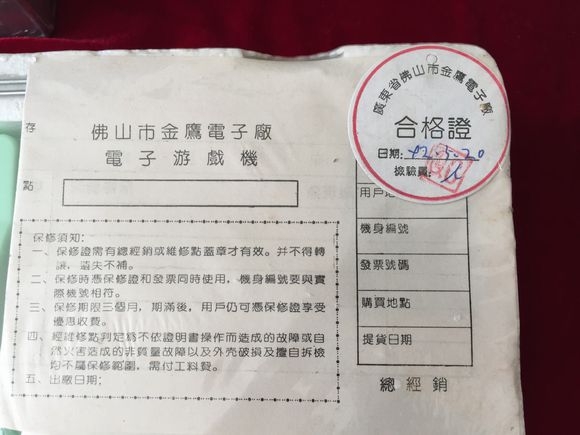 佛山市金鷹電子廠
電子游戲機
存
點
保修須知:
一、保修證需有總經銷或維修點蓋章才有效。并不得轉
讓,遺失不補。
二、保修時憑保修證和發票同時使用,機身編號要與實
際機號相符。
三、保修期限三個月,期滿後,用戶仍可憑保修證享受
優惠收費。
四、經維修點判定為不依證明書操作而造成的故障或自
然災害造成的非質量故障以及外壳破損及擅自拆檢
均不屬保修範圍,需付工料費。
五、出廠日期:
廣東省佛山市金鷹電子廠
合格證
日期: 92.5.20
檢驗員:
用戶地
機身編號
發票號碼
購買地點
提貨日期
總經銷